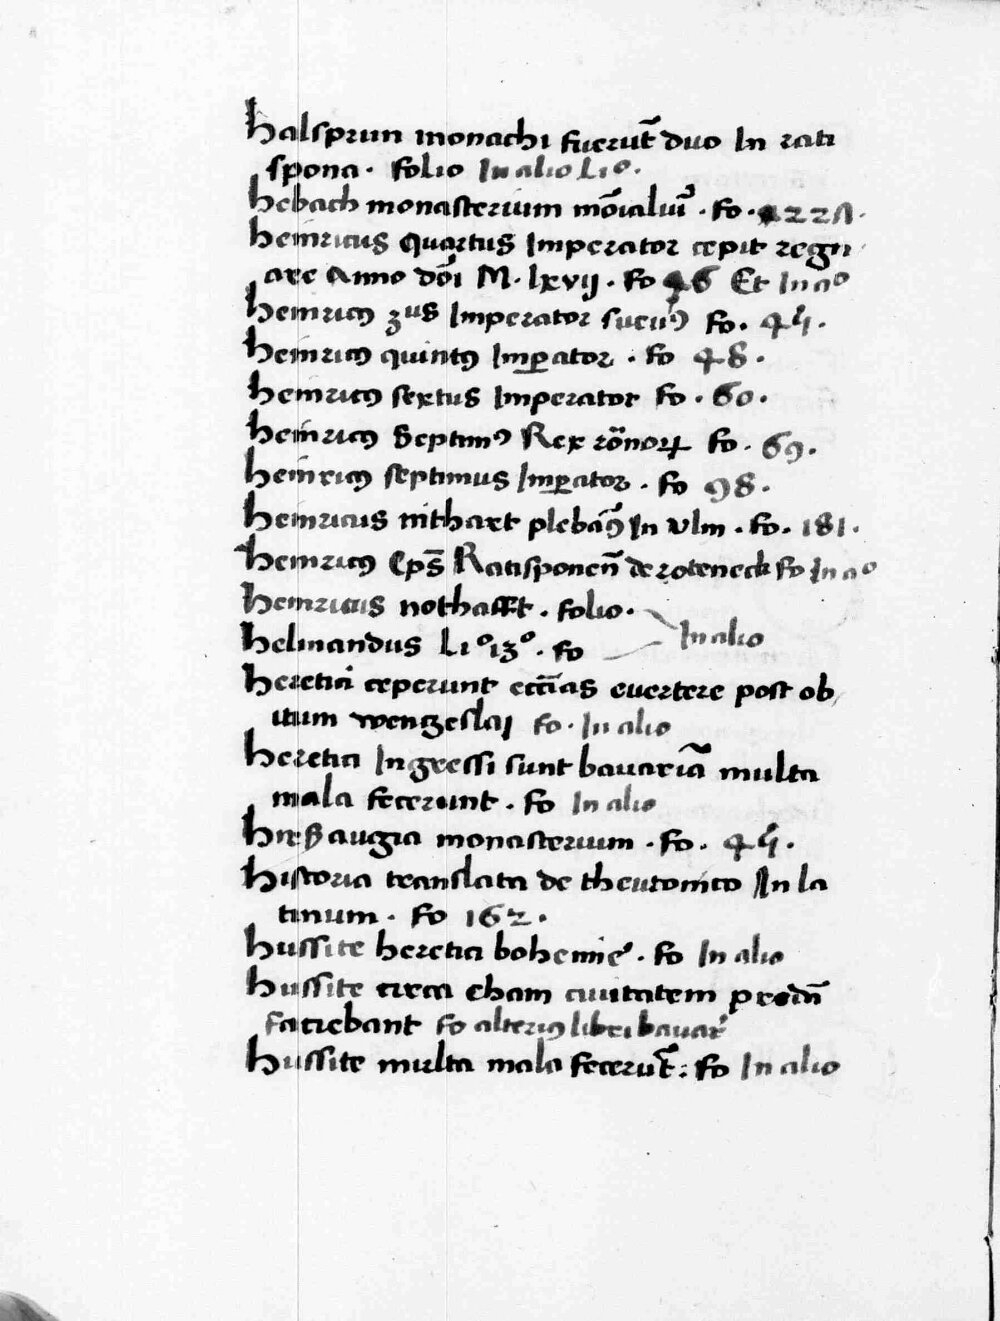 halsprun monachi fuerūt duo In rati
spona . folio In alio Lio.
hebach monasterium mōialiū . fo .
heinricus quartus Imperator cepit regn
are Anno dōi M. lxvij . fo 46 Et In ao
heinricꝯ 3us Imperator fo. 45.
heinricꝯ quintꝯ Imꝑator . fo 48 .
heinricꝯ sextus Imperator fo . 60 .
heinricꝯ Septimꝯ Rex rōnoꝝ fo . 69 .
heinricꝯ septimus Imꝑator . fo 98 .
heinricus nithart plebāꝯ In vlm . fo . 181 .
heinricꝯ Eps̄ Ratisponeñ de roteneck fo In ao
heinricus nothafft . folio .
helinandus Lio 13o . fo In alio
heretici ceperunt ecc̄ias euertere post ob
itum wenczeslaj fo . In alio
heretici Ingressi sunt bauariā multa
mala fecerunt . fo In alio
augia monasterium . fo . 45 .
historia translata de theutonico In la
tinum . fo 162 .
hussite heretici bohemie . fo In alio
hussite circa cham ciuitatem
faciebant fo alteriꝯ libri bauar
hussite multa mala fecerūt . fo In alio